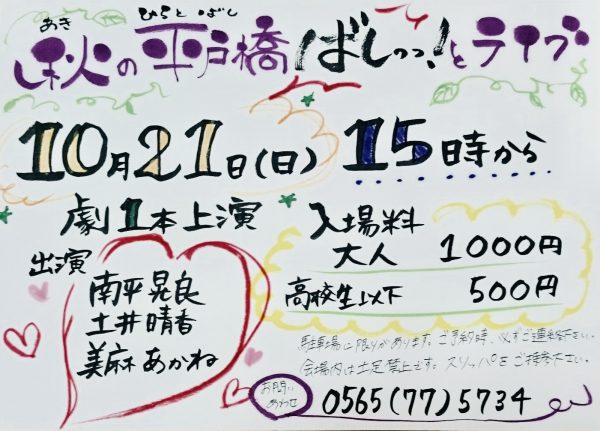 あき ひらとばし
秋の平戸橋ばしっっ!とライブ
10月21日(日) 15時から
劇1本上演
出演
南平晃良
土井晴香
美麻あかね
入場料
大人 1000円
高校生以下 500円
駐車場に限りがあります。ご予約時、必ずご連絡下さい。
会場内は土足禁止です。スリッパをご持参下さい。
お問い
あわせ
0565(77)5734